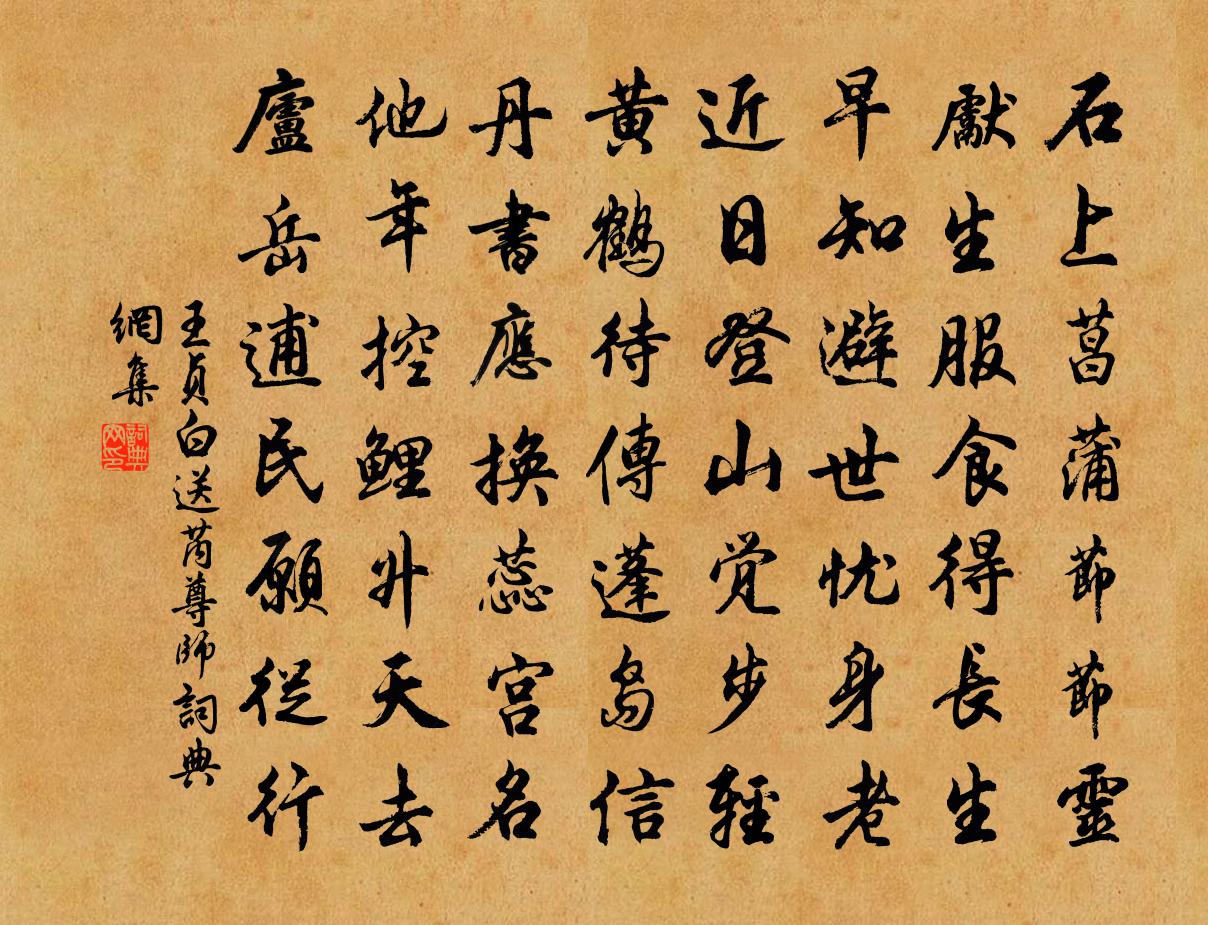 石上菖蒲節節靈
獻生服食得長生
早知避世忧身老
近日登山觉步輕
黄鶴待傳蓬島信
丹書應換蕊宮名
他年控鯉升天去
廬岳逋民願從行
王貞白送芮尊師詞典
網集
詞典网印